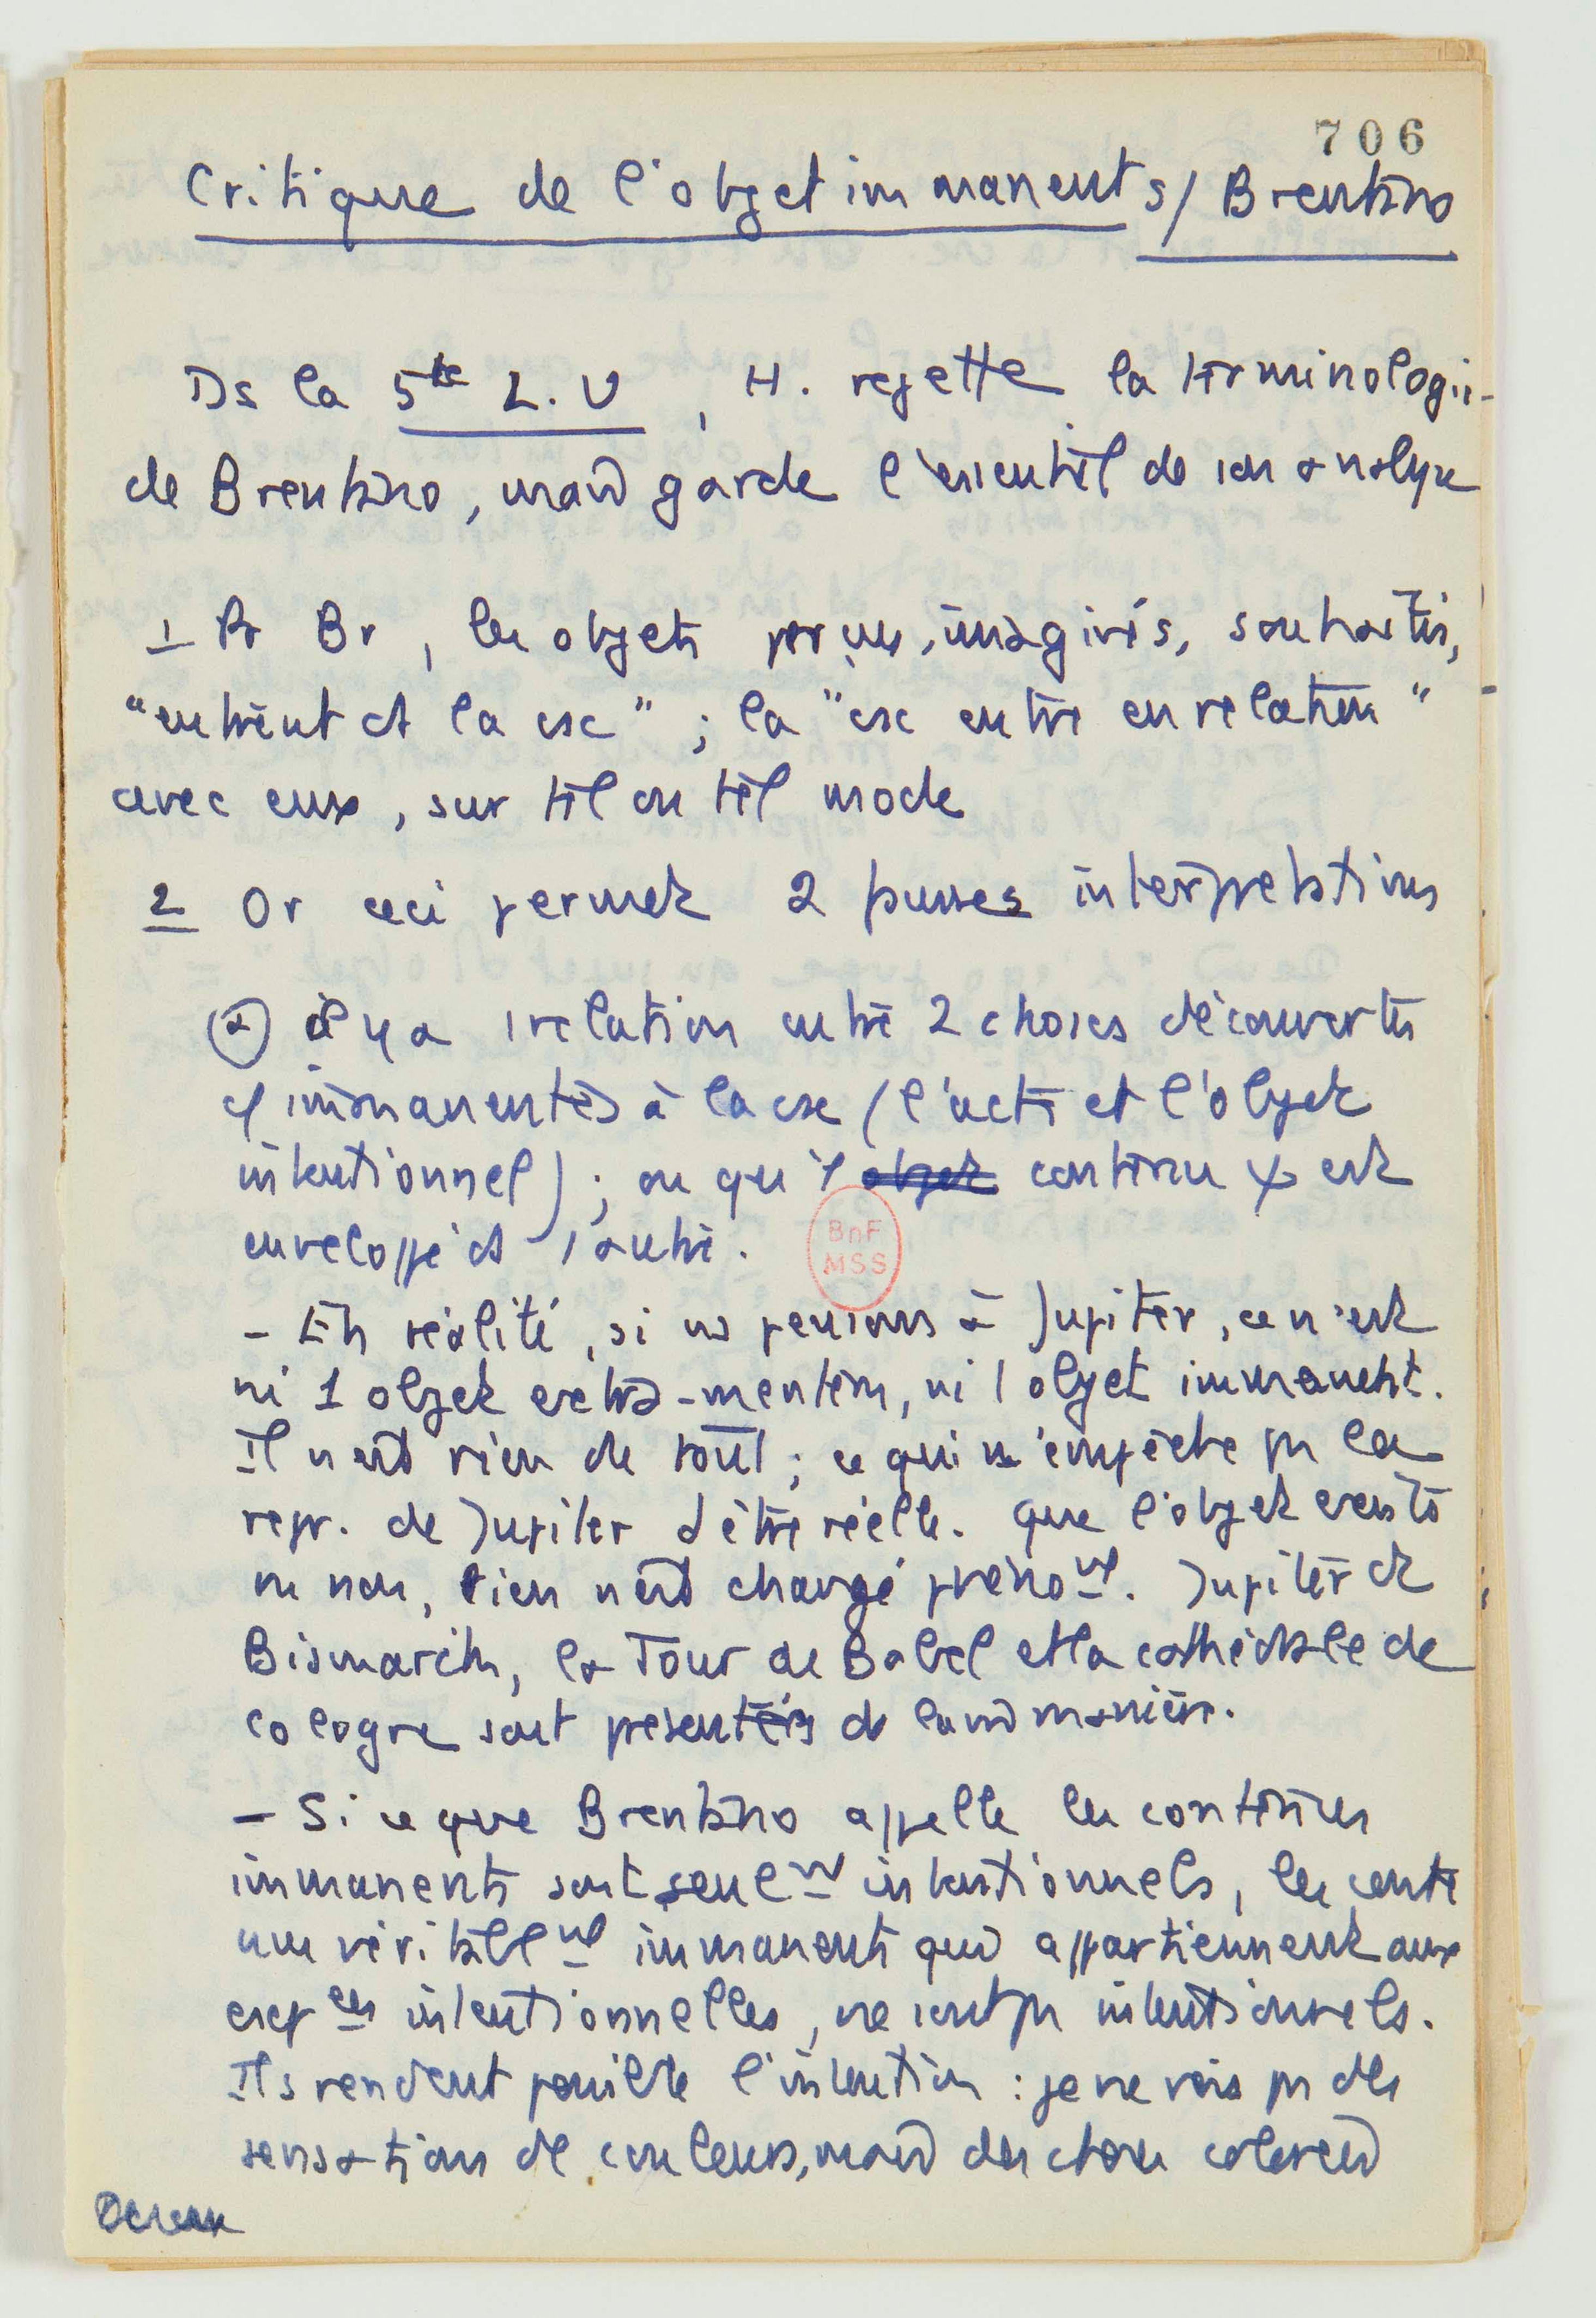 706
Critique de l'objet immanent s/ Brentano
Ds la 5te L.U, H. rejette la terminologie
de Brentano, mais garde l'essentiel de son analyse
1 Pr Br, les objets perçus, imaginés, souhaités,
"entrent ds la csc" ; la "csc entre en relation"
avec eux, sur tel ou tel mode
2 Or ceci permet 2 fausses interprétations
a il y a 1 relation entre 2 choses découvertes
immanentes à la csc (l'acte et l'objet
intentionnel) ; ou qu'1 objet contenu ψ est
enveloppé ds 1 autre.
BnF
MSS
- En réalité, si ns pensons à Jupiter, ce n'est
ni 1 objet extra-mentem, ni 1 objet immanent.
Il n'est rien de tout ; ce qui n'empêche pas la
repr. de Jupiter d'être réelle. Que l'objet existe
ou non, rien n'est changé phénot. Jupiter et
Bismarck, la Tour de Babel et la cathédrale de
Cologne sont présentés de la m manière.
- Si ce que Brentano appelle les contenus
immanents sont seulmt intentionnels, les conte
nus véritablmt immanents qui appartiennent aux
exp ces intentionnelles, ne sont pas intentionnels.
Ils rendent possible l'intention : je ne vois pas des
sensations de couleurs, mais des choses colorées